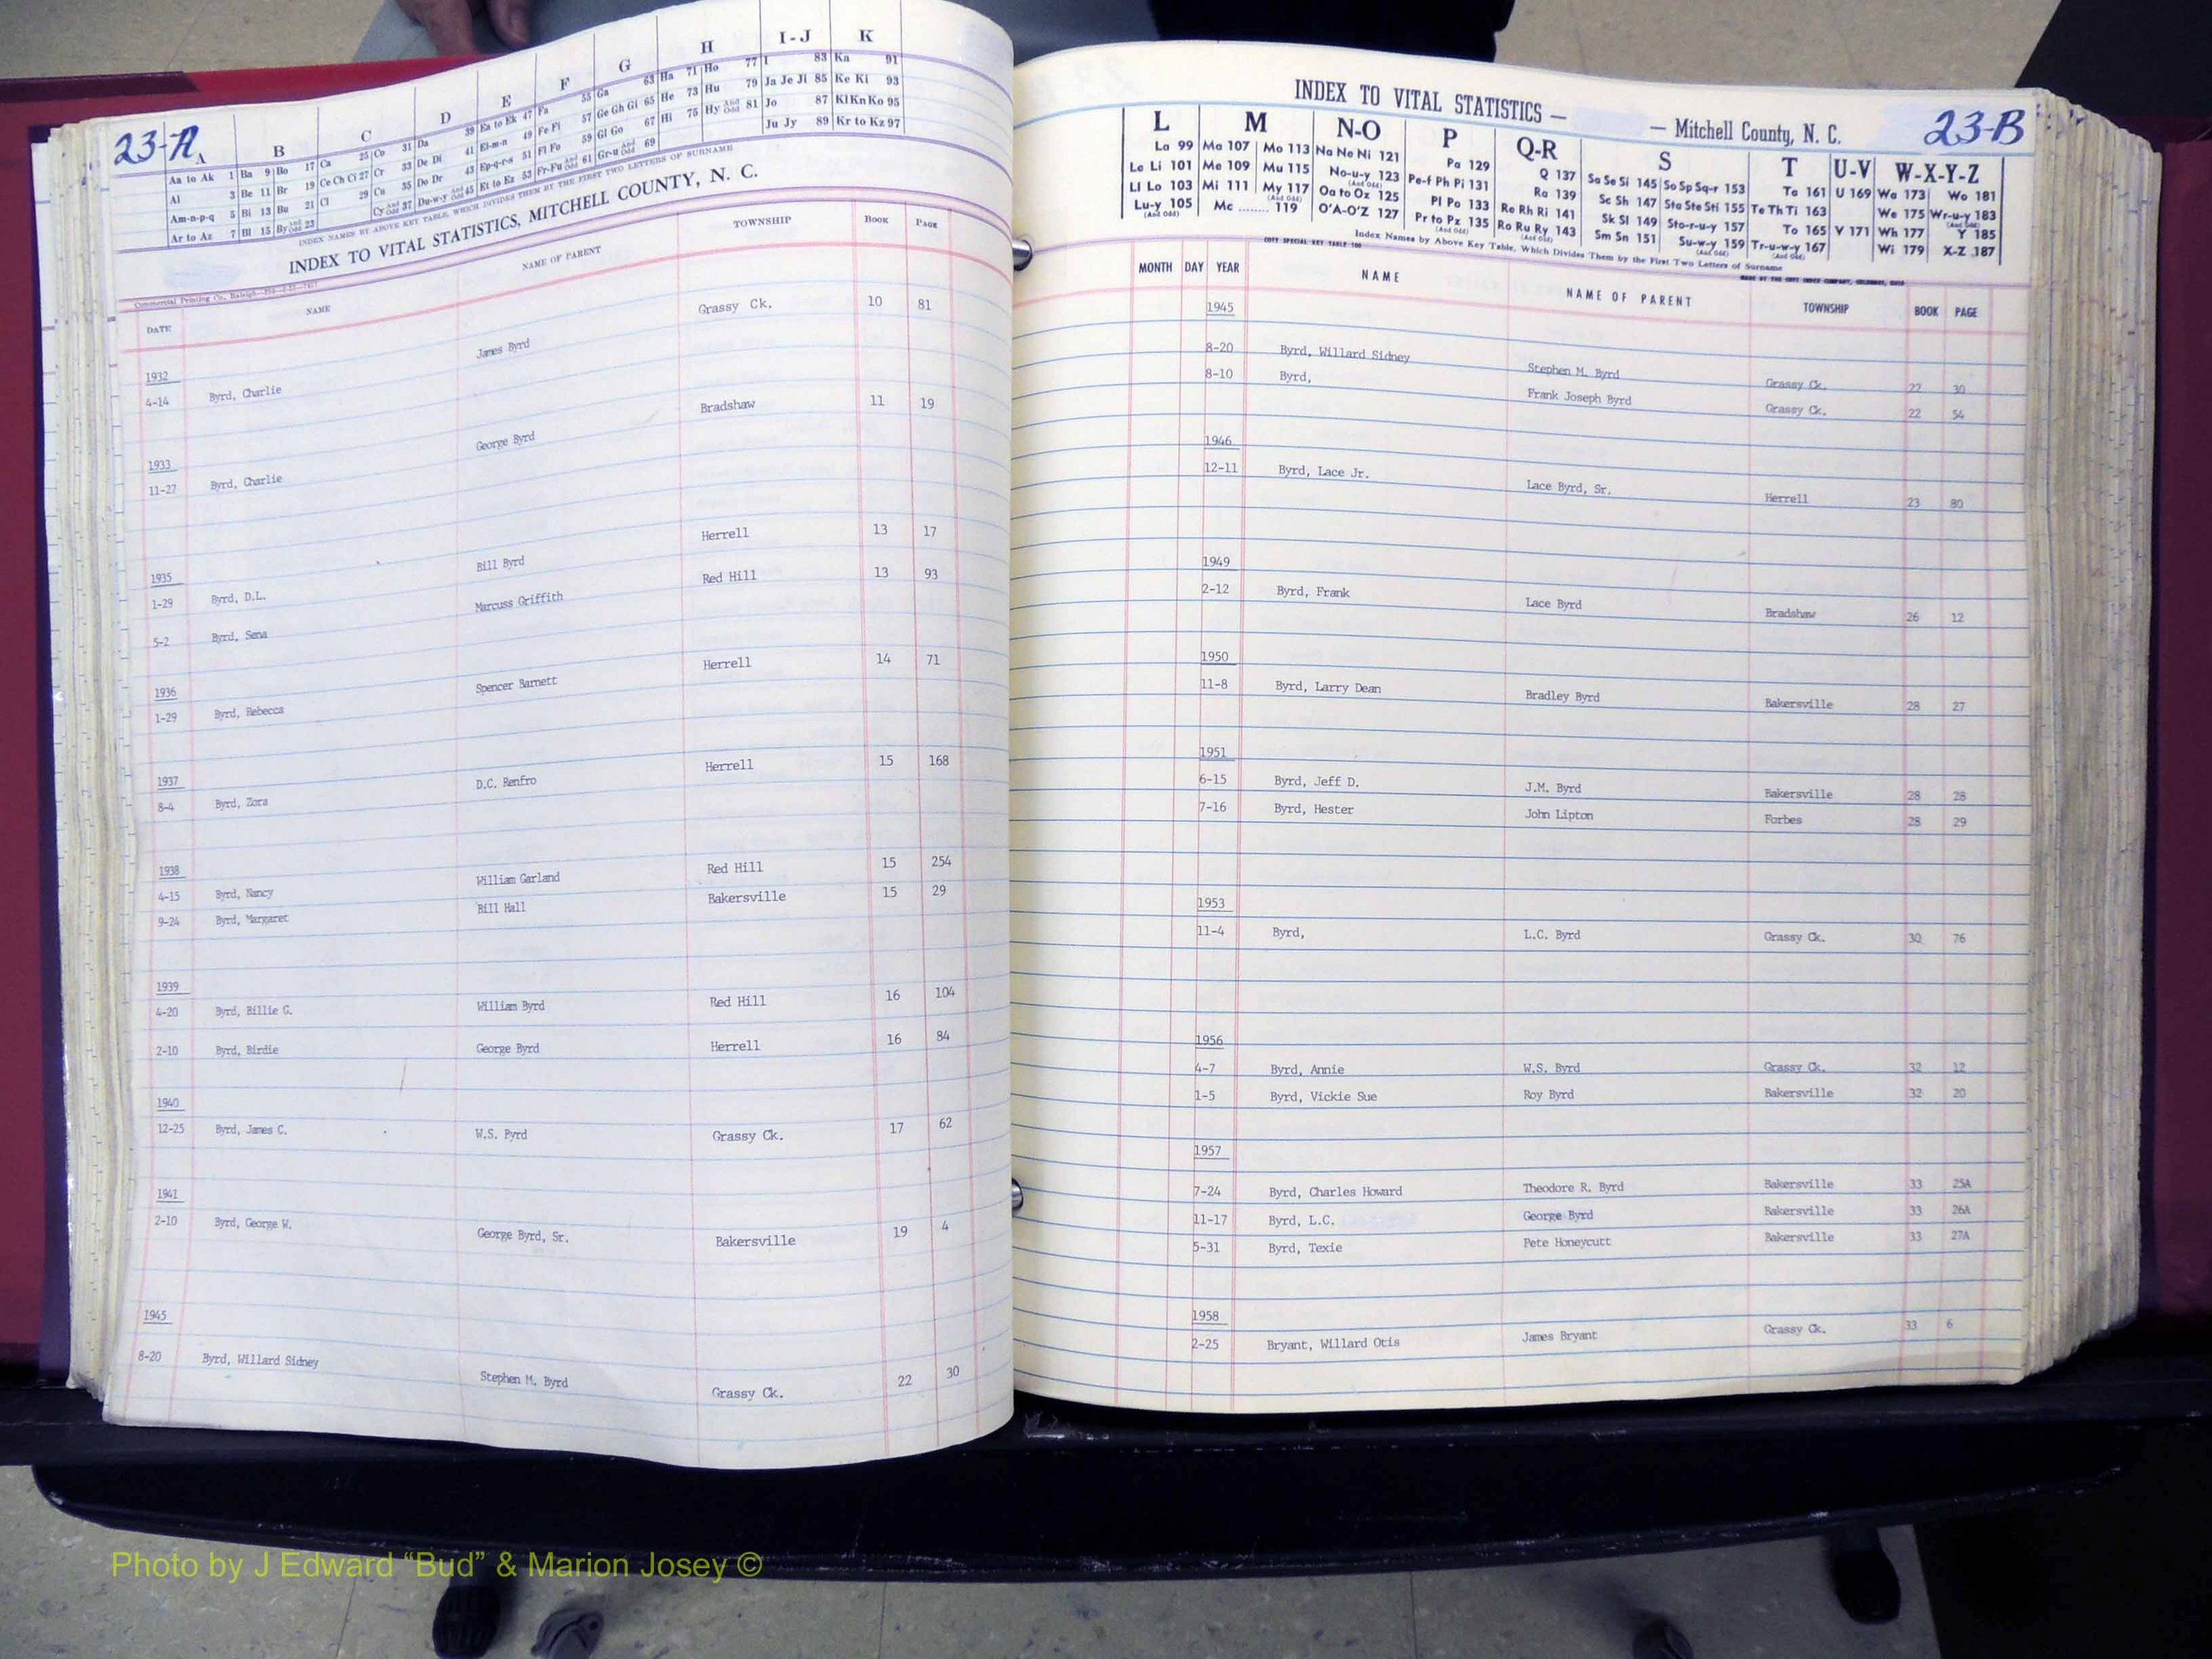 23-A
A B C D E F G H I-J K
Aa to Ak 1 Ba 9 Bo 17 Ca 25 Co 31 Da 39 Ea to Ek 47 Fa 55 Ga 63 Ha 71 Ho 77 I 83 Ka 91
Al 3 Be 11 Br 19 Ce Ch Ci 27 Cr 33 De Di 41 El-m-n 49 Fe Fi 57 Ge Gh Gi 65 He 73 Hu 79 Ja Je Ji 85 Ke Ki 93
Am-n-p-q 5 Bi 13 Bu 21 Cl 29 Cu 35 Do Dr 43 Ep-q-r-s 51 Fl Fo 59 Gl Go 67 Hi 75 Hy And Odd 81 Jo 87 Kl Kn Ko 95
Ar to Az 7 Bl 15 By And Odd 23 Cy And Odd 37 Du-w-y And Odd 45 Et to Ez 53 Fr-Fu And Odd 61 Gr-u And Odd 69 Ju Jy 89 Kr to Kz 97
INDEX NAMES BY ABOVE KEY TABLE, WHICH DIVIDES THEM BY THE FIRST TWO LETTERS OF SURNAME
INDEX TO VITAL STATISTICS, MITCHELL COUNTY, N. C.
DATE NAME NAME OF PARENT TOWNSHIP BOOK PAGE
1932
4-14 Byrd, Charlie James Byrd Grassy Ck. 10 81
1933
11-27 Byrd, Charlie George Byrd Bradshaw 11 19
1935
1-29 Byrd, D.L. Bill Byrd Herrell 13 17
5-2 Byrd, Sena Marcuss Griffith Red Hill 13 93
1936
1-29 Byrd, Rebecca Spencer Barnett Herrell 14 71
1937
8-4 Byrd, Zora D.C. Renfro Herrell 15 168
1938
4-15 Byrd, Nancy William Garland Red Hill 15 254
9-24 Byrd, Margaret Bill Hall Bakersville 15 29
1939
4-20 Byrd, Billie G. William Byrd Red Hill 16 104
2-10 Byrd, Birdie George Byrd Herrell 16 84
1940
12-25 Byrd, James C. W.S. Byrd Grassy Ck. 17 62
1941
2-10 Byrd, George W. George Byrd, Sr. Bakersville 19 4
1945
8-20 Byrd, Willard Sidney Stephen M. Byrd Grassy Ck. 22 30
INDEX TO VITAL STATISTICS — — Mitchell County, N. C. 23-B
L M N-O P Q-R S T U-V W-X-Y-Z
La 99 Ma 107 Mo 113 Na Ne Ni 121 Pa 129 Q 137 Sa Se Si 145 So Sp Sq-r 153 Ta 161 U 169 Wa 173 Wo 181
Le Li 101 Me 109 Mu 115 No-u-y 123 (And Odd) Pe-f Ph Pi 131 Ra 139 Sc Sh 147 Sta Ste Sti 155 Te Th Ti 163 We 175 Wr-u-y 183 (And Odd)
Ll Lo 103 Mi 111 My 117 (And Odd) Oa to Oz 125 Pl Po 133 Re Rh Ri 141 Sk Sl 149 Sto-r-u-y 157 To 165 V 171 Wh 177 Y 185
Lu-y 105 (And Odd) Mc ........ 119 O'A-O'Z 127 Pr to Pz 135 (And Odd) Ro Ru Ry 143 (And Odd) Sm Sn 151 Su-w-y 159 (And Odd) Tr-u-w-y 167 (And Odd) Wi 179 X-Z 187
Index Names by Above Key Table, Which Divides Them by the First Two Letters of Surname
MONTH DAY YEAR NAME NAME OF PARENT TOWNSHIP BOOK PAGE
1945
8-20 Byrd, Willard Sidney Stephen M. Byrd Grassy Ck. 22 30
8-10 Byrd, Frank Joseph Byrd Grassy Ck. 22 54
1946
12-11 Byrd, Lace Jr. Lace Byrd, Sr. Herrell 23 80
1949
2-12 Byrd, Frank Lace Byrd Bradshaw 26 12
1950
11-8 Byrd, Larry Dean Bradley Byrd Bakersville 28 27
1951
6-15 Byrd, Jeff D. J.M. Byrd Bakersville 28 28
7-16 Byrd, Hester John Lipton Forbes 28 29
1953
11-4 Byrd, L.C. Byrd Grassy Ck. 30 76
1956
4-7 Byrd, Annie W.S. Byrd Grassy Ck. 32 12
1-5 Byrd, Vickie Sue Roy Byrd Bakersville 32 20
1957
7-24 Byrd, Charles Howard Theodore R. Byrd Bakersville 33 25A
11-17 Byrd, L.C. George Byrd Bakersville 33 26A
5-31 Byrd, Texie Pete Honeycutt Bakersville 33 27A
1958
2-25 Bryant, Willard Otis James Bryant Grassy Ck. 33 6
Photo by J Edward “Bud” & Marion Josey ©